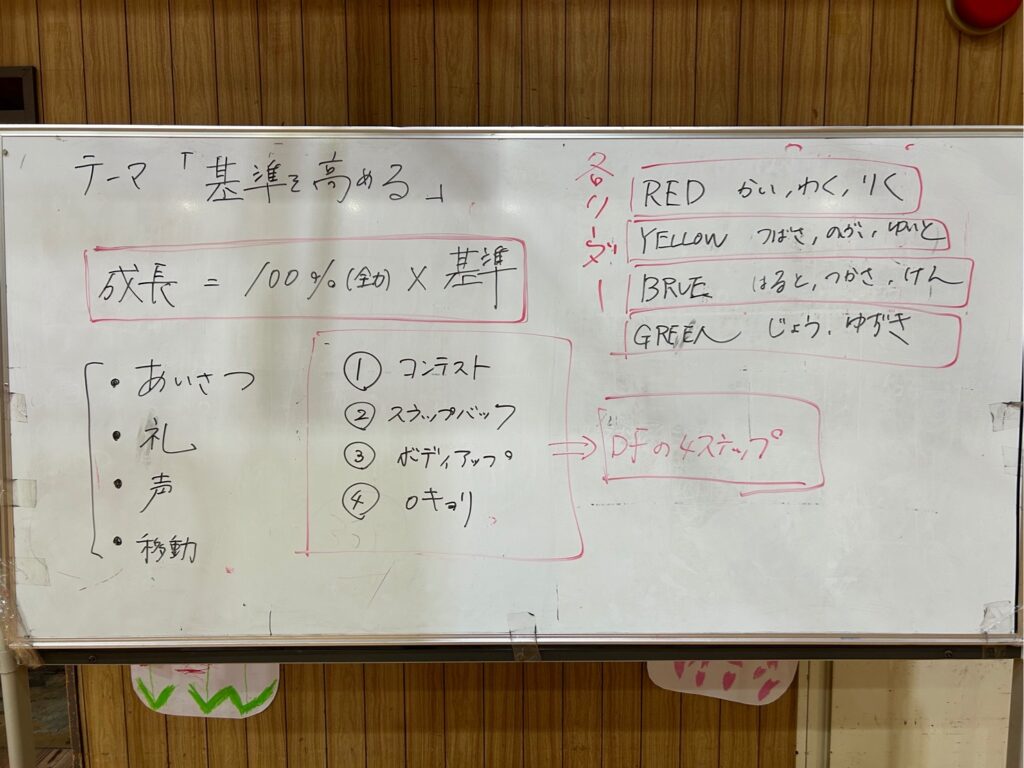 テーマ「基準を高める」
成長 = 100%(全力) × 基準
・あいさつ
・礼
・声
・移動
① コンテスト
② スラップバック
③ ボディアップ
④ 0キョリ
⇒ DFの4ステップ
各リーダー
RED かい,わく,りく
YELLOW つばさ,のが,ゆいと
BRUE はると,つかさ,けん
GREEN じょう,ゆずき